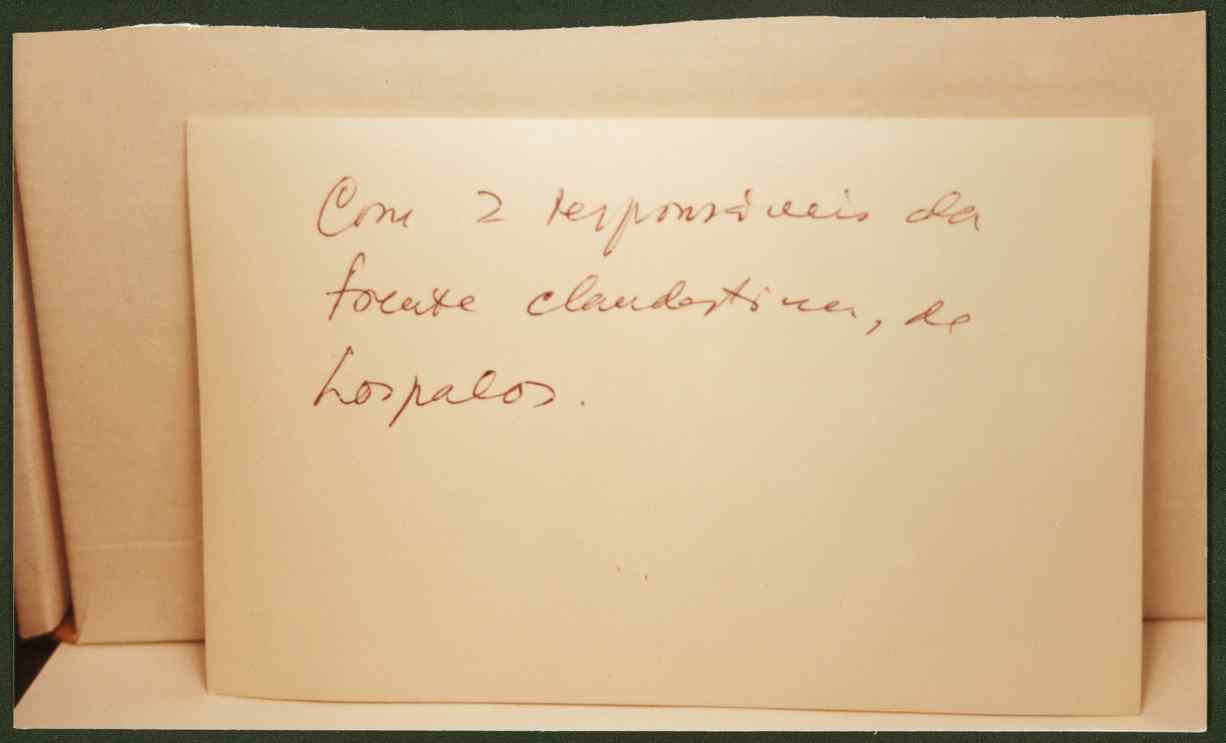 Com 2 responsáveis da
frente clandestina, de
Lospalos.